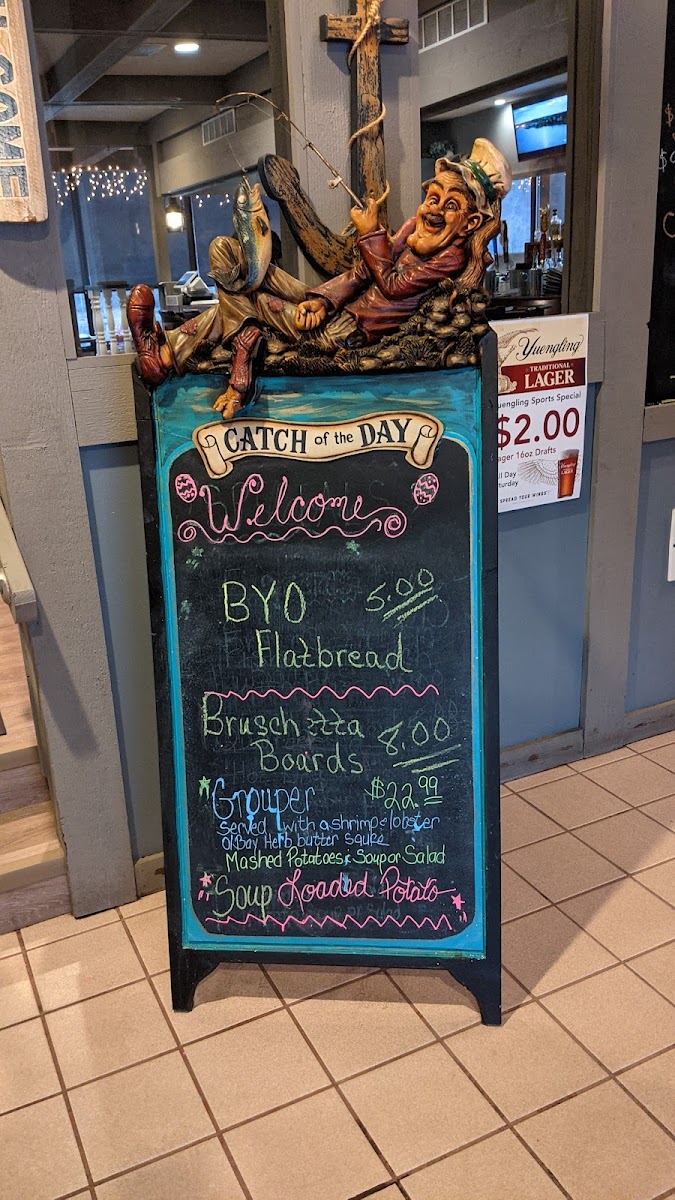 COME
CATCH of the DAY
Welcome
BYO 5.00
Flatbread
Bruschetta 8.00
Boards
Grouper $22.99
Served with a shrimp & lobster
Ol Bay Herb butter sauce
Mashed Potatoes & Soup or Salad
Soup Loaded Potato
Yuengling
TRADITIONAL
LAGER
uengling Sports Special
$2.00
ager 16oz Drafts
ll Day
turday
SPREAD YOUR WINGS